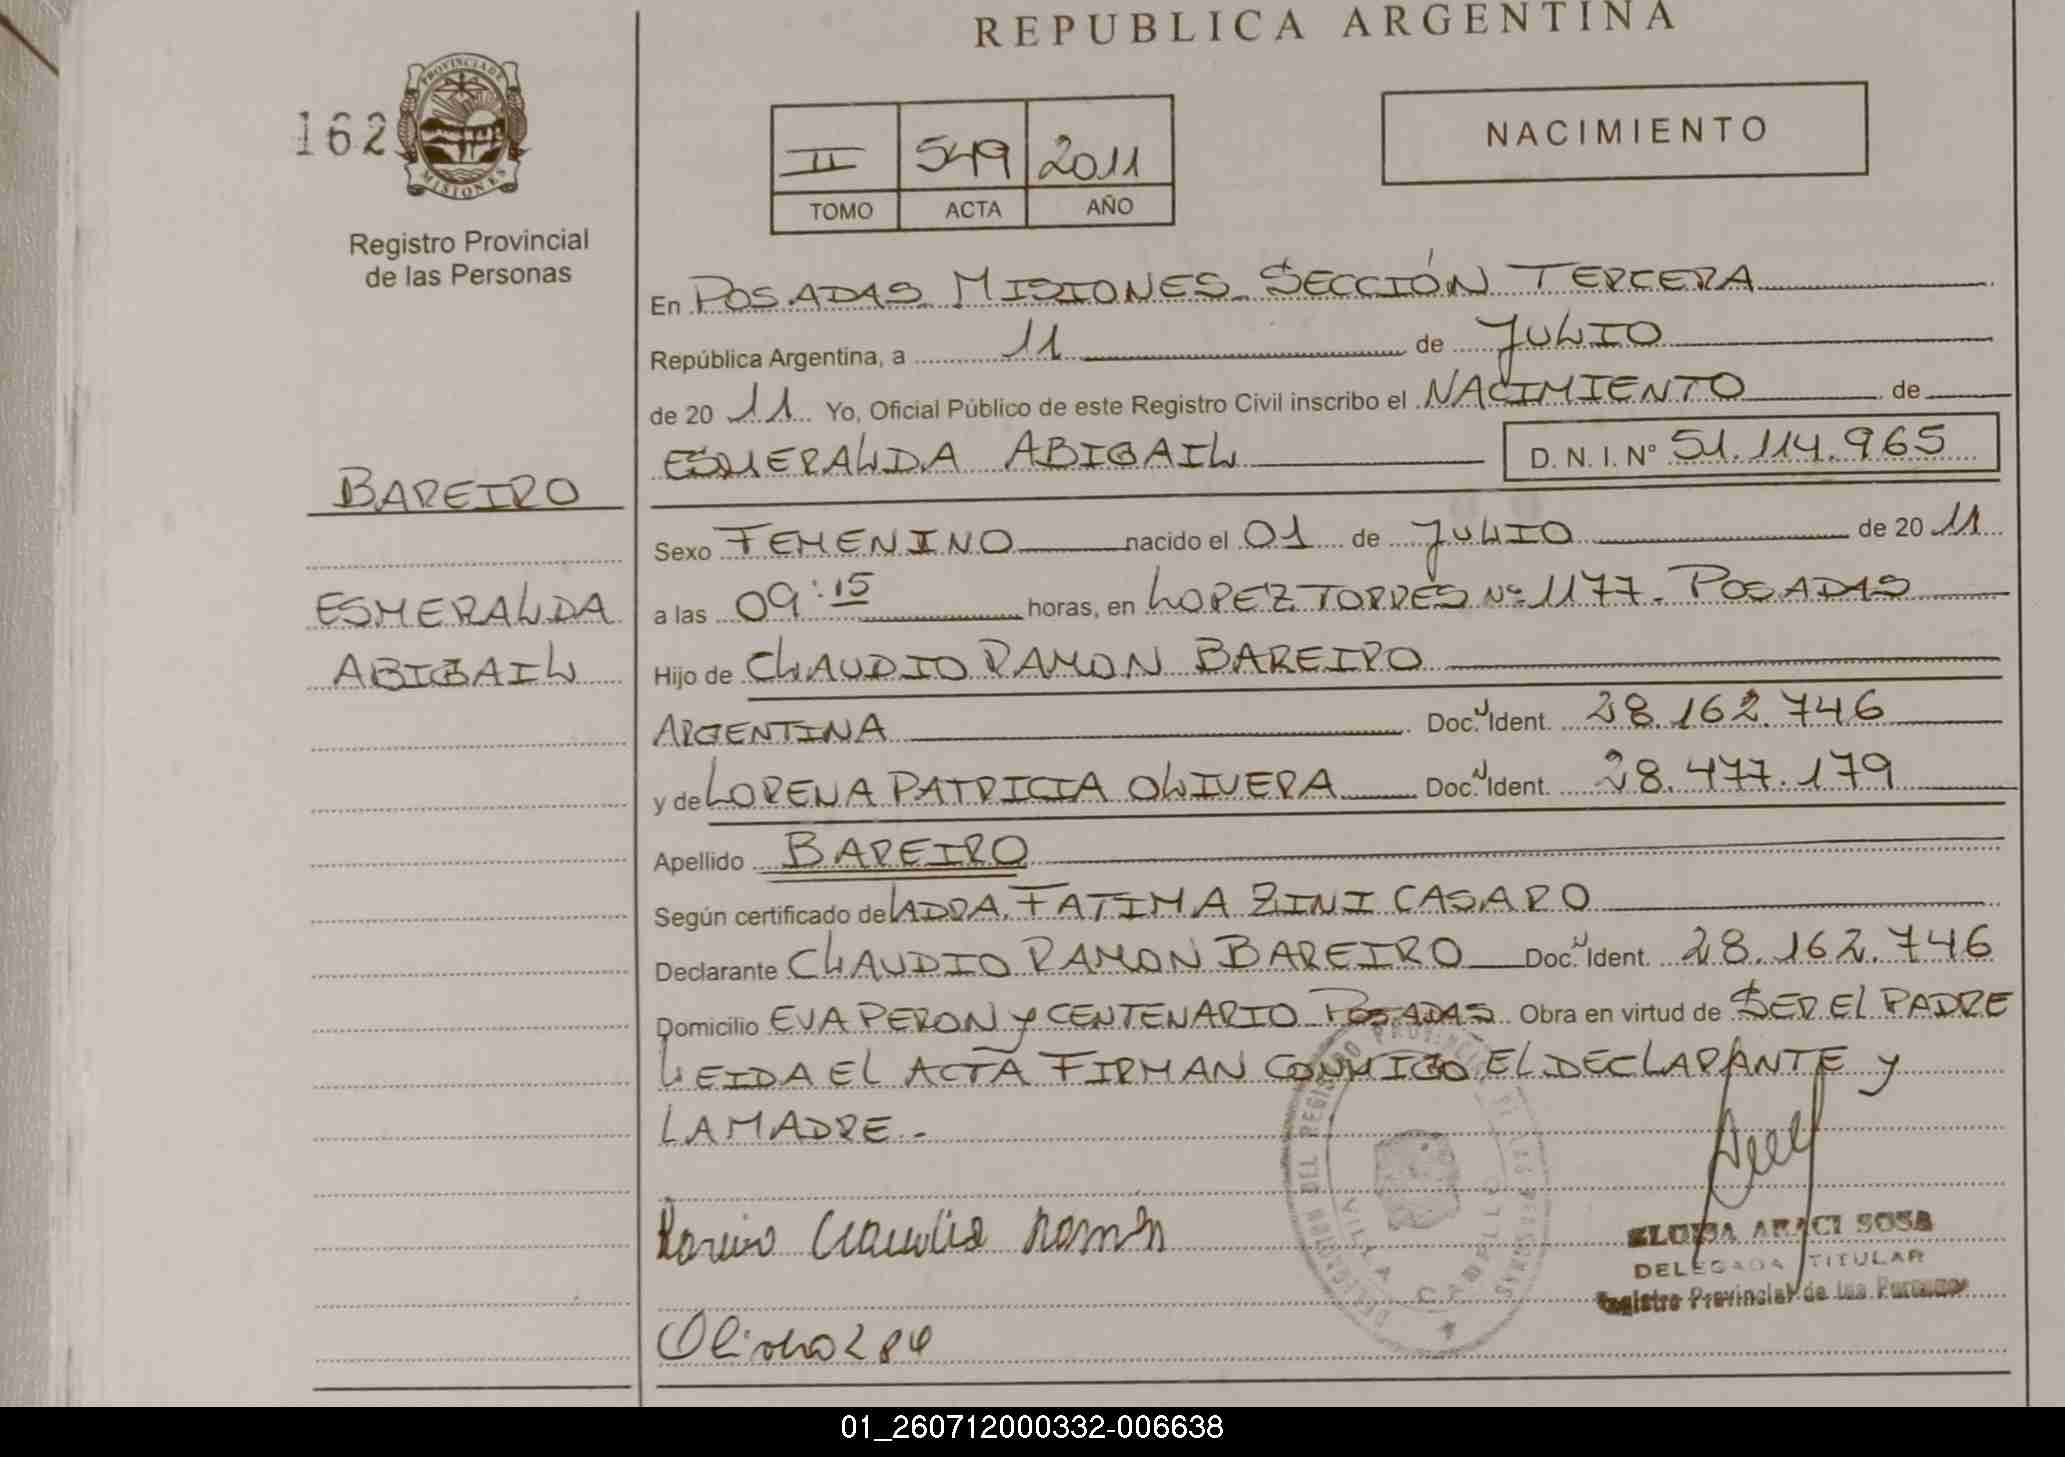 REPUBLICA ARGENTINA
162
PROVINCIA DE
MISIONES
Registro Provincial
de las Personas
II 549 2011
TOMO ACTA AÑO
NACIMIENTO
En POSADAS MISIONES SECCIÓN TERCERA
República Argentina, a 11 de JULIO
de 20 11 Yo, Oficial Público de este Registro Civil inscribo el NACIMIENTO de
ESMERALDA ABIGAIL D. N. I. Nº 51.114.965
BAREIRO
ESMERALDA
ABIGAIL
Sexo FEMENINO nacido el 01 de JULIO de 20 11
a las 09:15 horas, en LOPEZ TORRES Nº 1177. POSADAS
Hijo de CLAUDIO RAMON BAREIRO
ARGENTINA Doc. Ident. 28.162.746
y de LORENA PATRICIA OLIVERA Doc. Ident. 28.477.179
Apellido BAREIRO
Según certificado de LA DRA. FATIMA ZINI CASARO
Declarante CLAUDIO RAMON BAREIRO Doc. Ident. 28.162.746
Domicilio EVA PERON y CENTENARIO POSADAS Obra en virtud de SER EL PADRE
LEIDA EL ACTA FIRMAN CONMIGO EL DECLARANTE y
LA MADRE.-
Bareiro Claudio Ramon
ELOISA ARACI SOSA
DELEGADA TITULAR
Registro Provincial de las Personas
DELEGACION DEL REGISTRO PROVINCIAL DE LAS PERSONAS
VILLA CABELLO
01_260712000332-006638